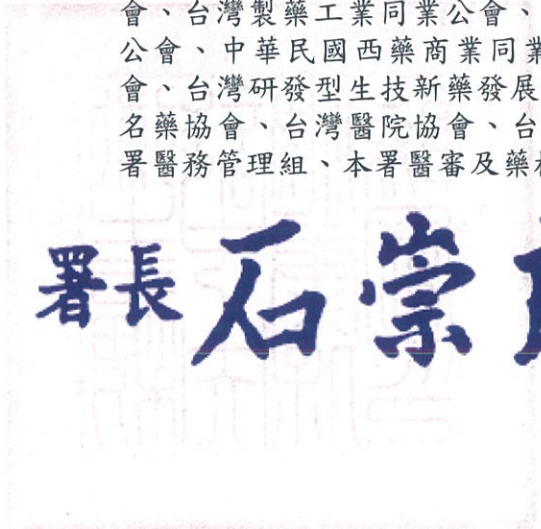 會、台灣製藥工業同業公會、
公會、中華民國西藥商業同業
會、台灣研發型生技新藥發展
名藥協會、台灣醫院協會、台
署醫務管理組、本署醫審及藥
署長 石崇